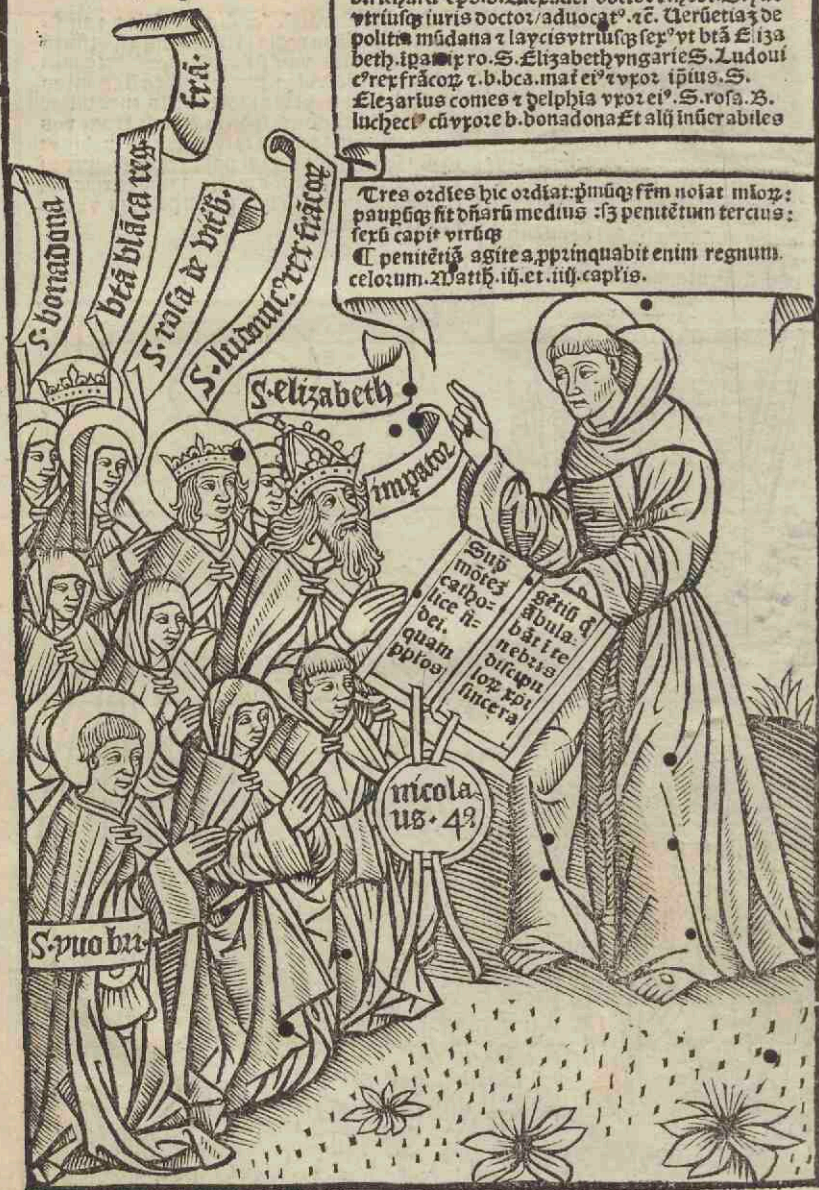 vtriusq; iuris doctor/aduocatꝰ.⁊c̄. Uerūetiaꝫ de
politia mūdana ⁊ laycis vtriusq; sexꝰ vt btā Eliza
beth. īpatrix ro. S. Elizabeth vngarie S. Ludoui
cꝰ rex frācoꝝ ⁊. b. bca. mat̄ eiꝰ ⁊ vxor ip̄ius. S.
Elezarius comes ⁊ delphia vxor eiꝰ. S. rosa. B.
lucheciꝰ cū vxore b. bonadona Et alij inūerabiles
Tres ordīes hic ordīat: p̄mūq; fr̄m noīat mīoꝝ:
paupūq; fit dn̄arū medius: sꝫ penitētium tercius:
sexū capit vtrūq;
¶ penitētiā agite appropinquabit enim regnum
celorum. Matth. iij. et. iiij. capl̄is.
frā.
btā blāca reg
S. bonadona
S. rosa de viēb.
S. ludouicꝰ. rex frācoꝝ
S. elizabeth
imp̄ator
Sup̄
mōteꝫ
catho-
lice fi-
dei.
quam
pp̄los
gētiū q̄
ābula-
bāt ī te
nebris
discipu
loꝝ xp̄i
sincera
nicola
us. 4ꝰ
S. yuo bri.